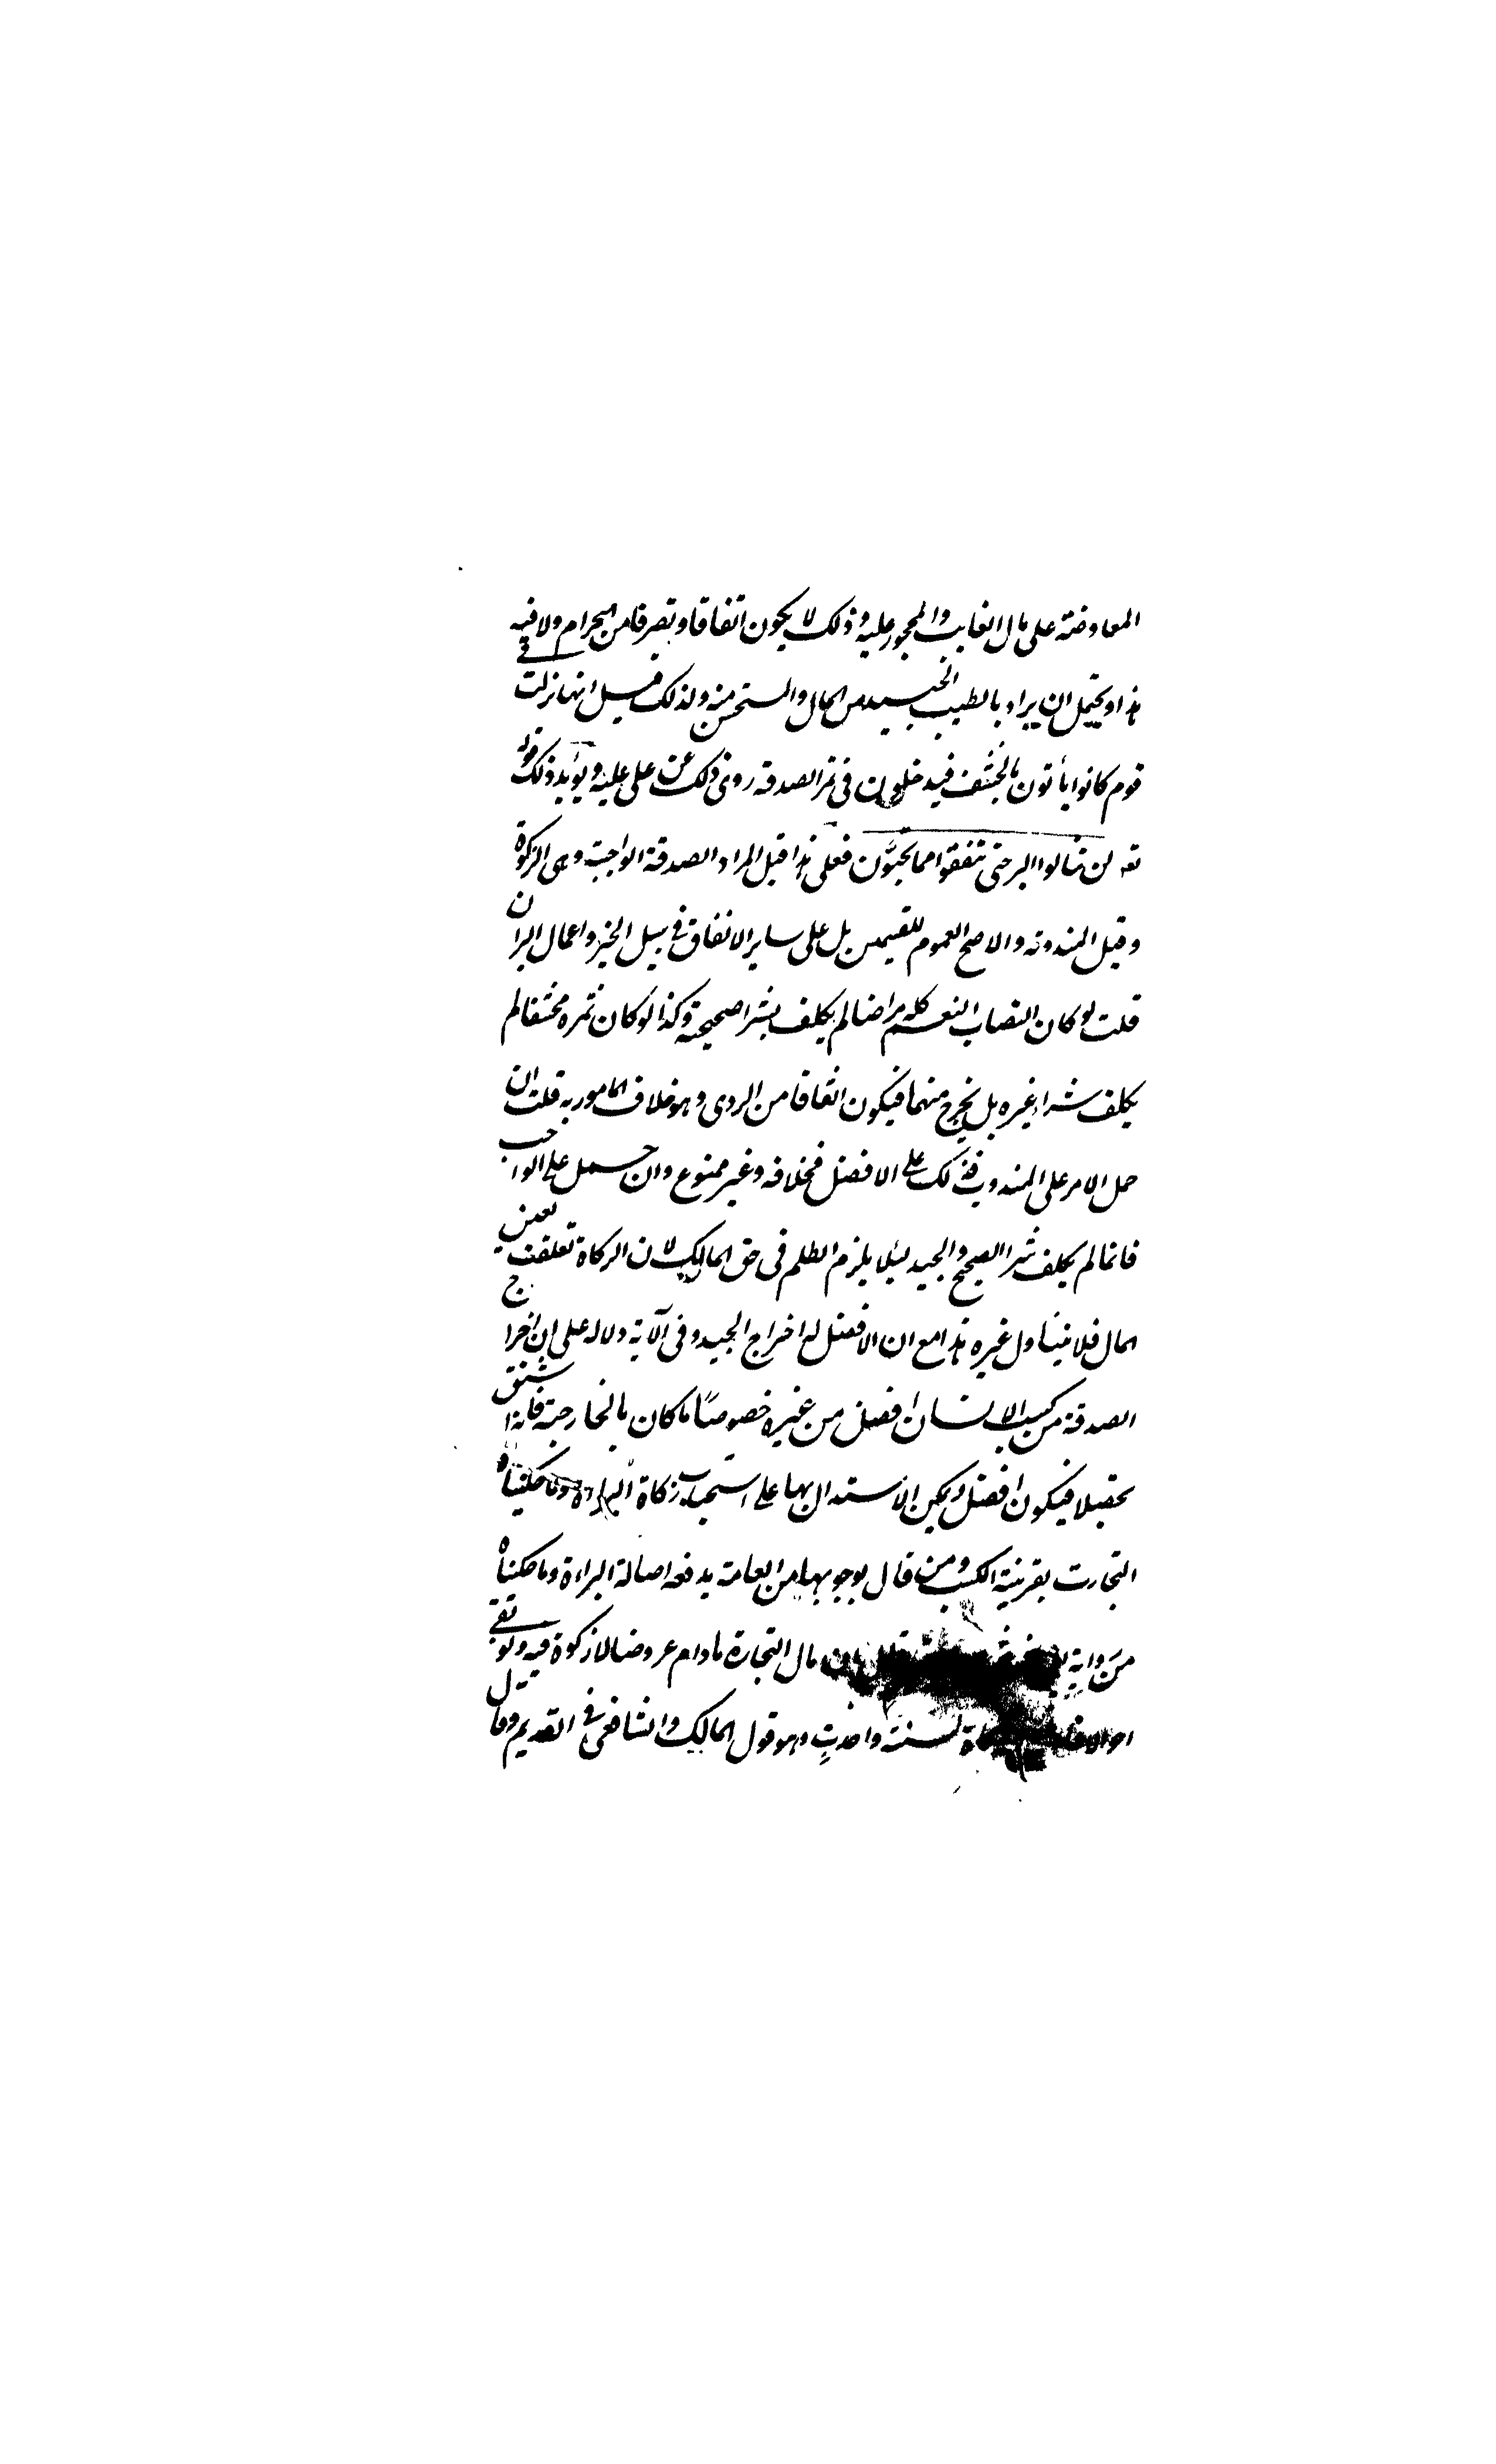 المعاوضة على مال الغايب والمحجور عليه وذلك لا يكون اتفاقا وتصرفا من الحرام ولا فيه
هذا ويحتمل ان يراد بالطيب الجيد من المال والمستحسن منه ولذلك قيل انها نزلت في
قوم كانوا يأتون بالحشف فيدخلون في تمر الصدقة روى ذلك عن علي عليه ويؤيد ذلك قوله
تعه لن تنالوا البر حتى تنفقوا مما تحبون فعلى هذا قيل المراد الصدقة الواجبة وهى الزكوة
وقيل المندوبه والاصح العموم للقسمين بل على ساير الانفاق في سبل الخير واعمال البر ان
قلت لو كان النصاب النعم كله مراضا لم يكلف بشرا صحيحة وكذا لو كان ثمره محشفا لم
يكلف شراء غيره بل يخرج منهما فيكون انفاقا من الردى وهو خلاف المامور به قلت ان
حمل الامر على المندوب فذلك على الافضل فخلافه وغير ممنوع وان حمل على الواجب
فانما لم يكلف شرا الصحيح والجيد لئلا يلزم الظلم في حق المالك لان الزكاة تعلقت بعين
المال فلا يتناول غيره هذا مع ان الافضل له اخراج الجيد وفى الآية دلاله على ان اخراج
الصدقة من كسب الانسان افضل من غيره خصوصًا ما كان بالخارجة فانه اشق
تحصيلا فيكون افضل ويمكن الاستدلال بها على استحباب زكاة
التجارت بقرينة الكسب ومن قال بوجوبها من العامة يدفعه اصالة البراءة وما حكيناه
من رواية مال التجارة مادام عروضا لا زكوة فيه ولو بقى
احوالا زكاة لسنة واحدتٍ وهو قول المالك والشافعى في القديم وقيل